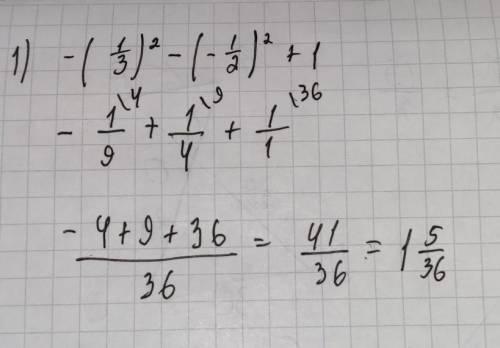 1) -(1/3)² - (-1/2)² + 1
- 1/9 \4 + 1/4 \9 + 1/1 \36
(- 4 + 9 + 36)/36 = 41/36 = 1 5/36